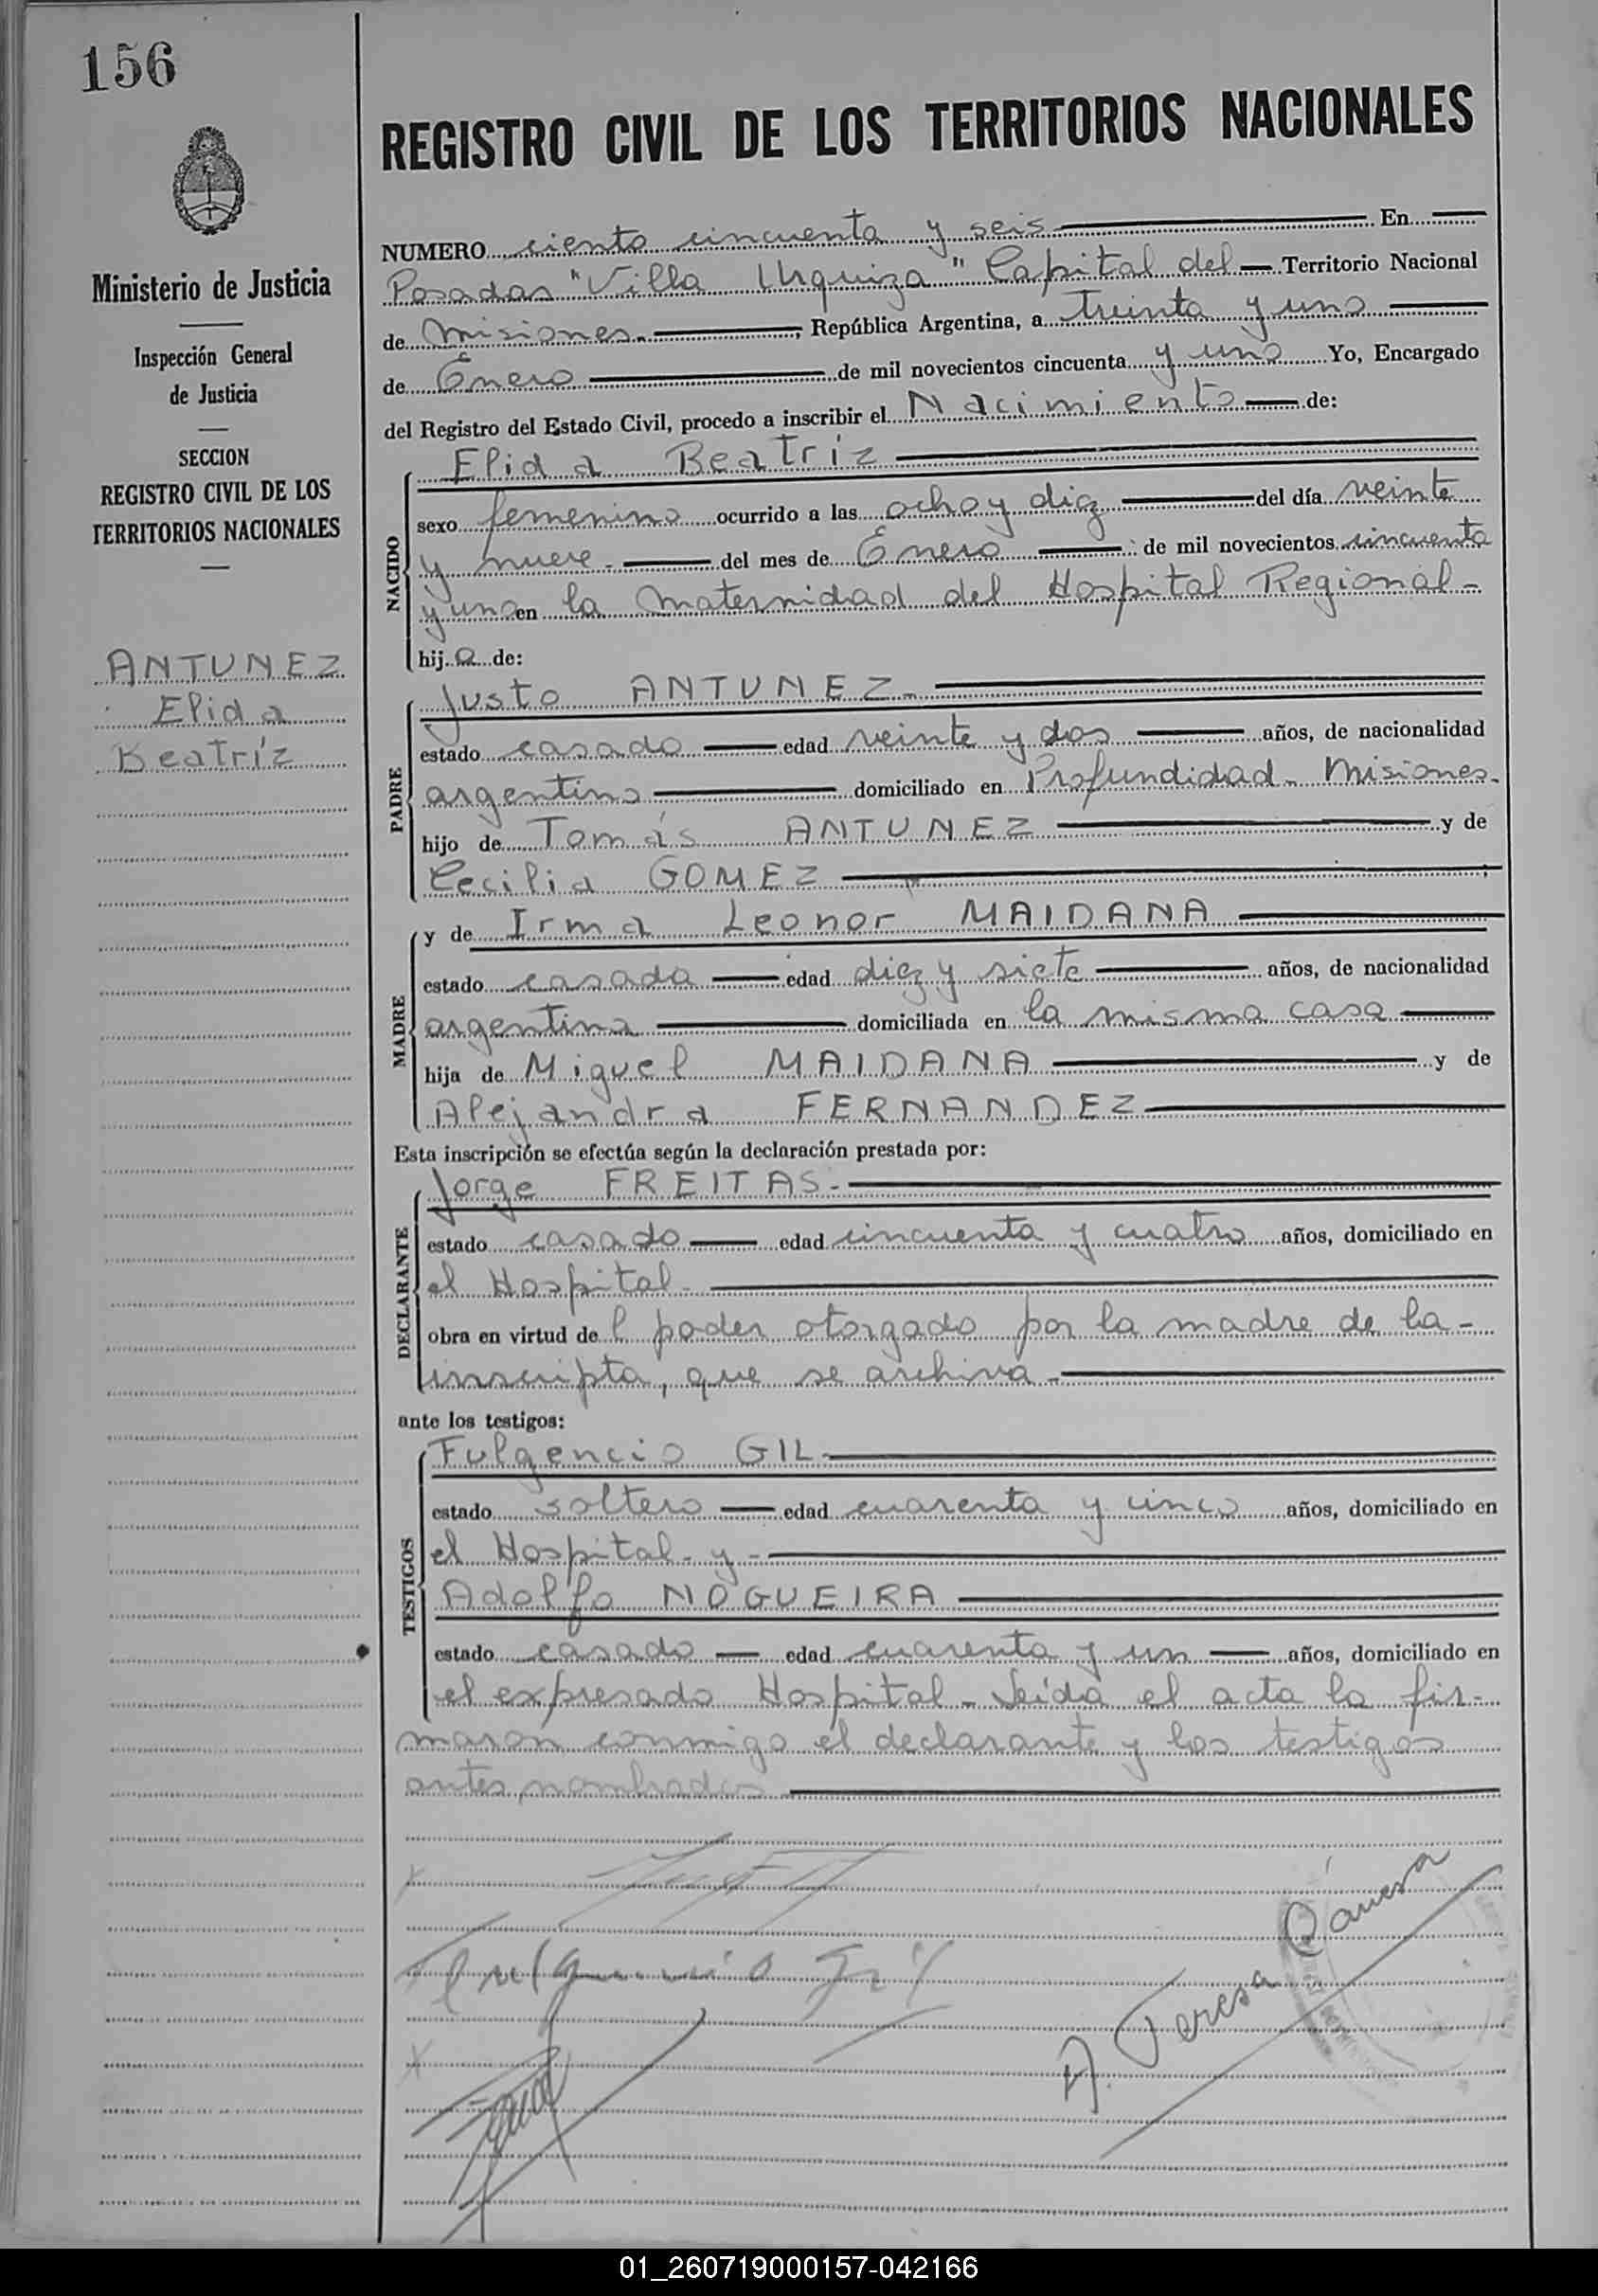 156
Ministerio de Justicia
Inspección General
de Justicia
SECCION
REGISTRO CIVIL DE LOS
TERRITORIOS NACIONALES
ANTUNEZ
Elida
Beatríz
REGISTRO CIVIL DE LOS TERRITORIOS NACIONALES
NUMERO ciento cincuenta y seis En
Posadas "Villa Urquiza" Capital del Territorio Nacional
de Misiones.-, República Argentina, a treinta y uno
de Enero de mil novecientos cincuenta y uno Yo, Encargado
del Registro del Estado Civil, procedo a inscribir el Nacimiento de:
NACIDO
Elida Beatríz
sexo femenino ocurrido a las ocho y diez del día veinte
y nueve.- del mes de Enero de mil novecientos cincuenta
y uno en la maternidad del Hospital Regional.-
hija de:
PADRE
Justo ANTUNEZ.-
estado casado edad veinte y dos años, de nacionalidad
argentino domiciliado en Profundidad - Misiones.
hijo de Tomás ANTUNEZ y de
Cecilia GOMEZ ;
MADRE
y de Irma Leonor MAIDANA
estado casada edad diez y siete años, de nacionalidad
argentina domiciliada en la misma casa
hija de Miguel MAIDANA y de
Alejandra FERNANDEZ
Esta inscripción se efectúa según la declaración prestada por:
DECLARANTE
Jorge FREITAS.-
estado casado edad cincuenta y cuatro años, domiciliado en
el Hospital.-
obra en virtud del poder otorgado por la madre de la-
inscripta, que se archiva.-
ante los testigos:
TESTIGOS
Fulgencio GIL
estado soltero edad cuarenta y cinco años, domiciliado en
el Hospital- y -
Adolfo NOGUEIRA
estado casado edad cuarenta y un años, domiciliado en
el expresado Hospital.- Leída el acta la fir-
maron conmigo el declarante y los testigos
antes nombrados
Fulguencio Gil
A. Teresa
01_260719000157-042166